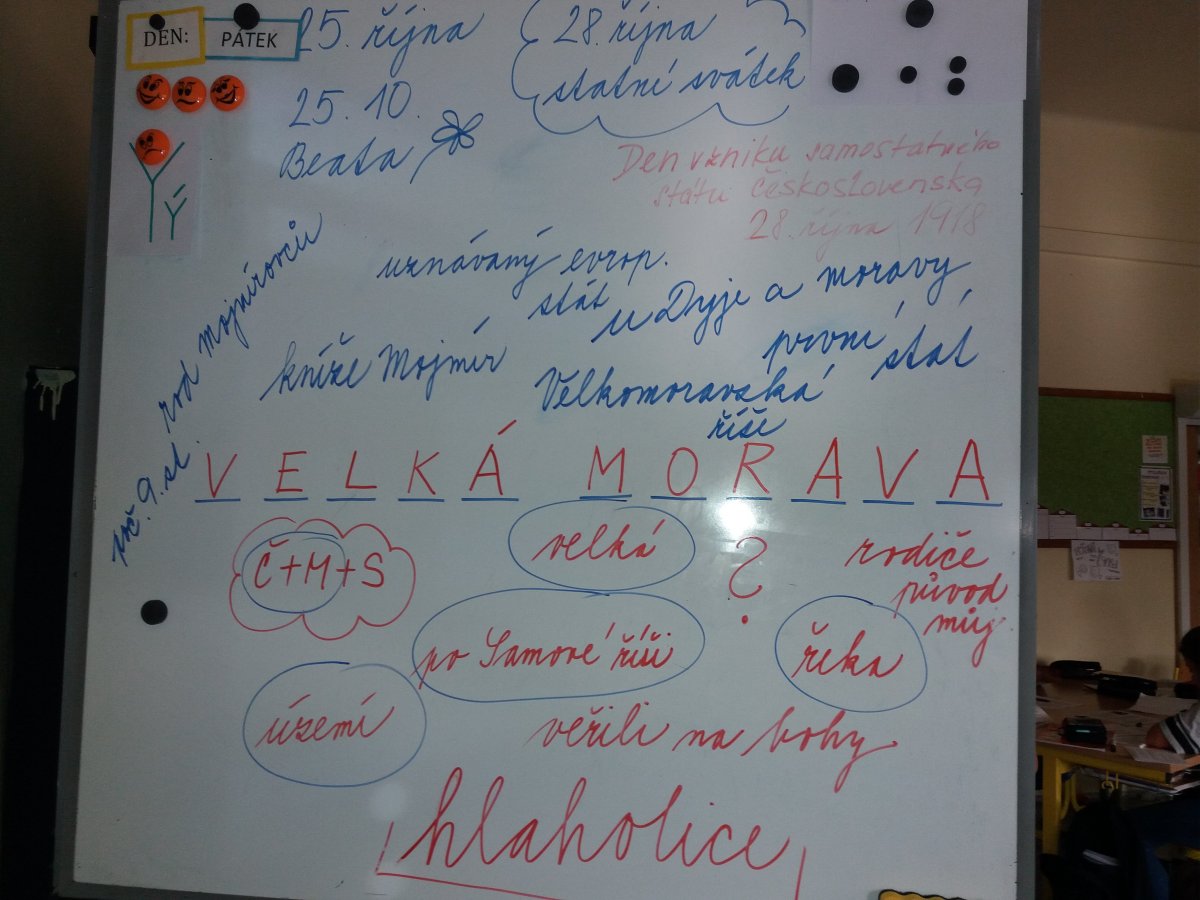 DEN: PÁTEK
25. října
25. 10.
Beata
28. října
statní svátek
Den vzniku samostatného
státu Československa
28. října 1918
uznávaný evrop.
stát
u Dyje a moravy
první stát
kníže Mojmír
Velkomoravská
říše
poč. 9. st. rod mojmírovců
VELKÁ MORAVA
Č+M+S
velká
?
rodiče
původ
můj
po Samově říši
řeka
území
věřili na bohy
hlaholice